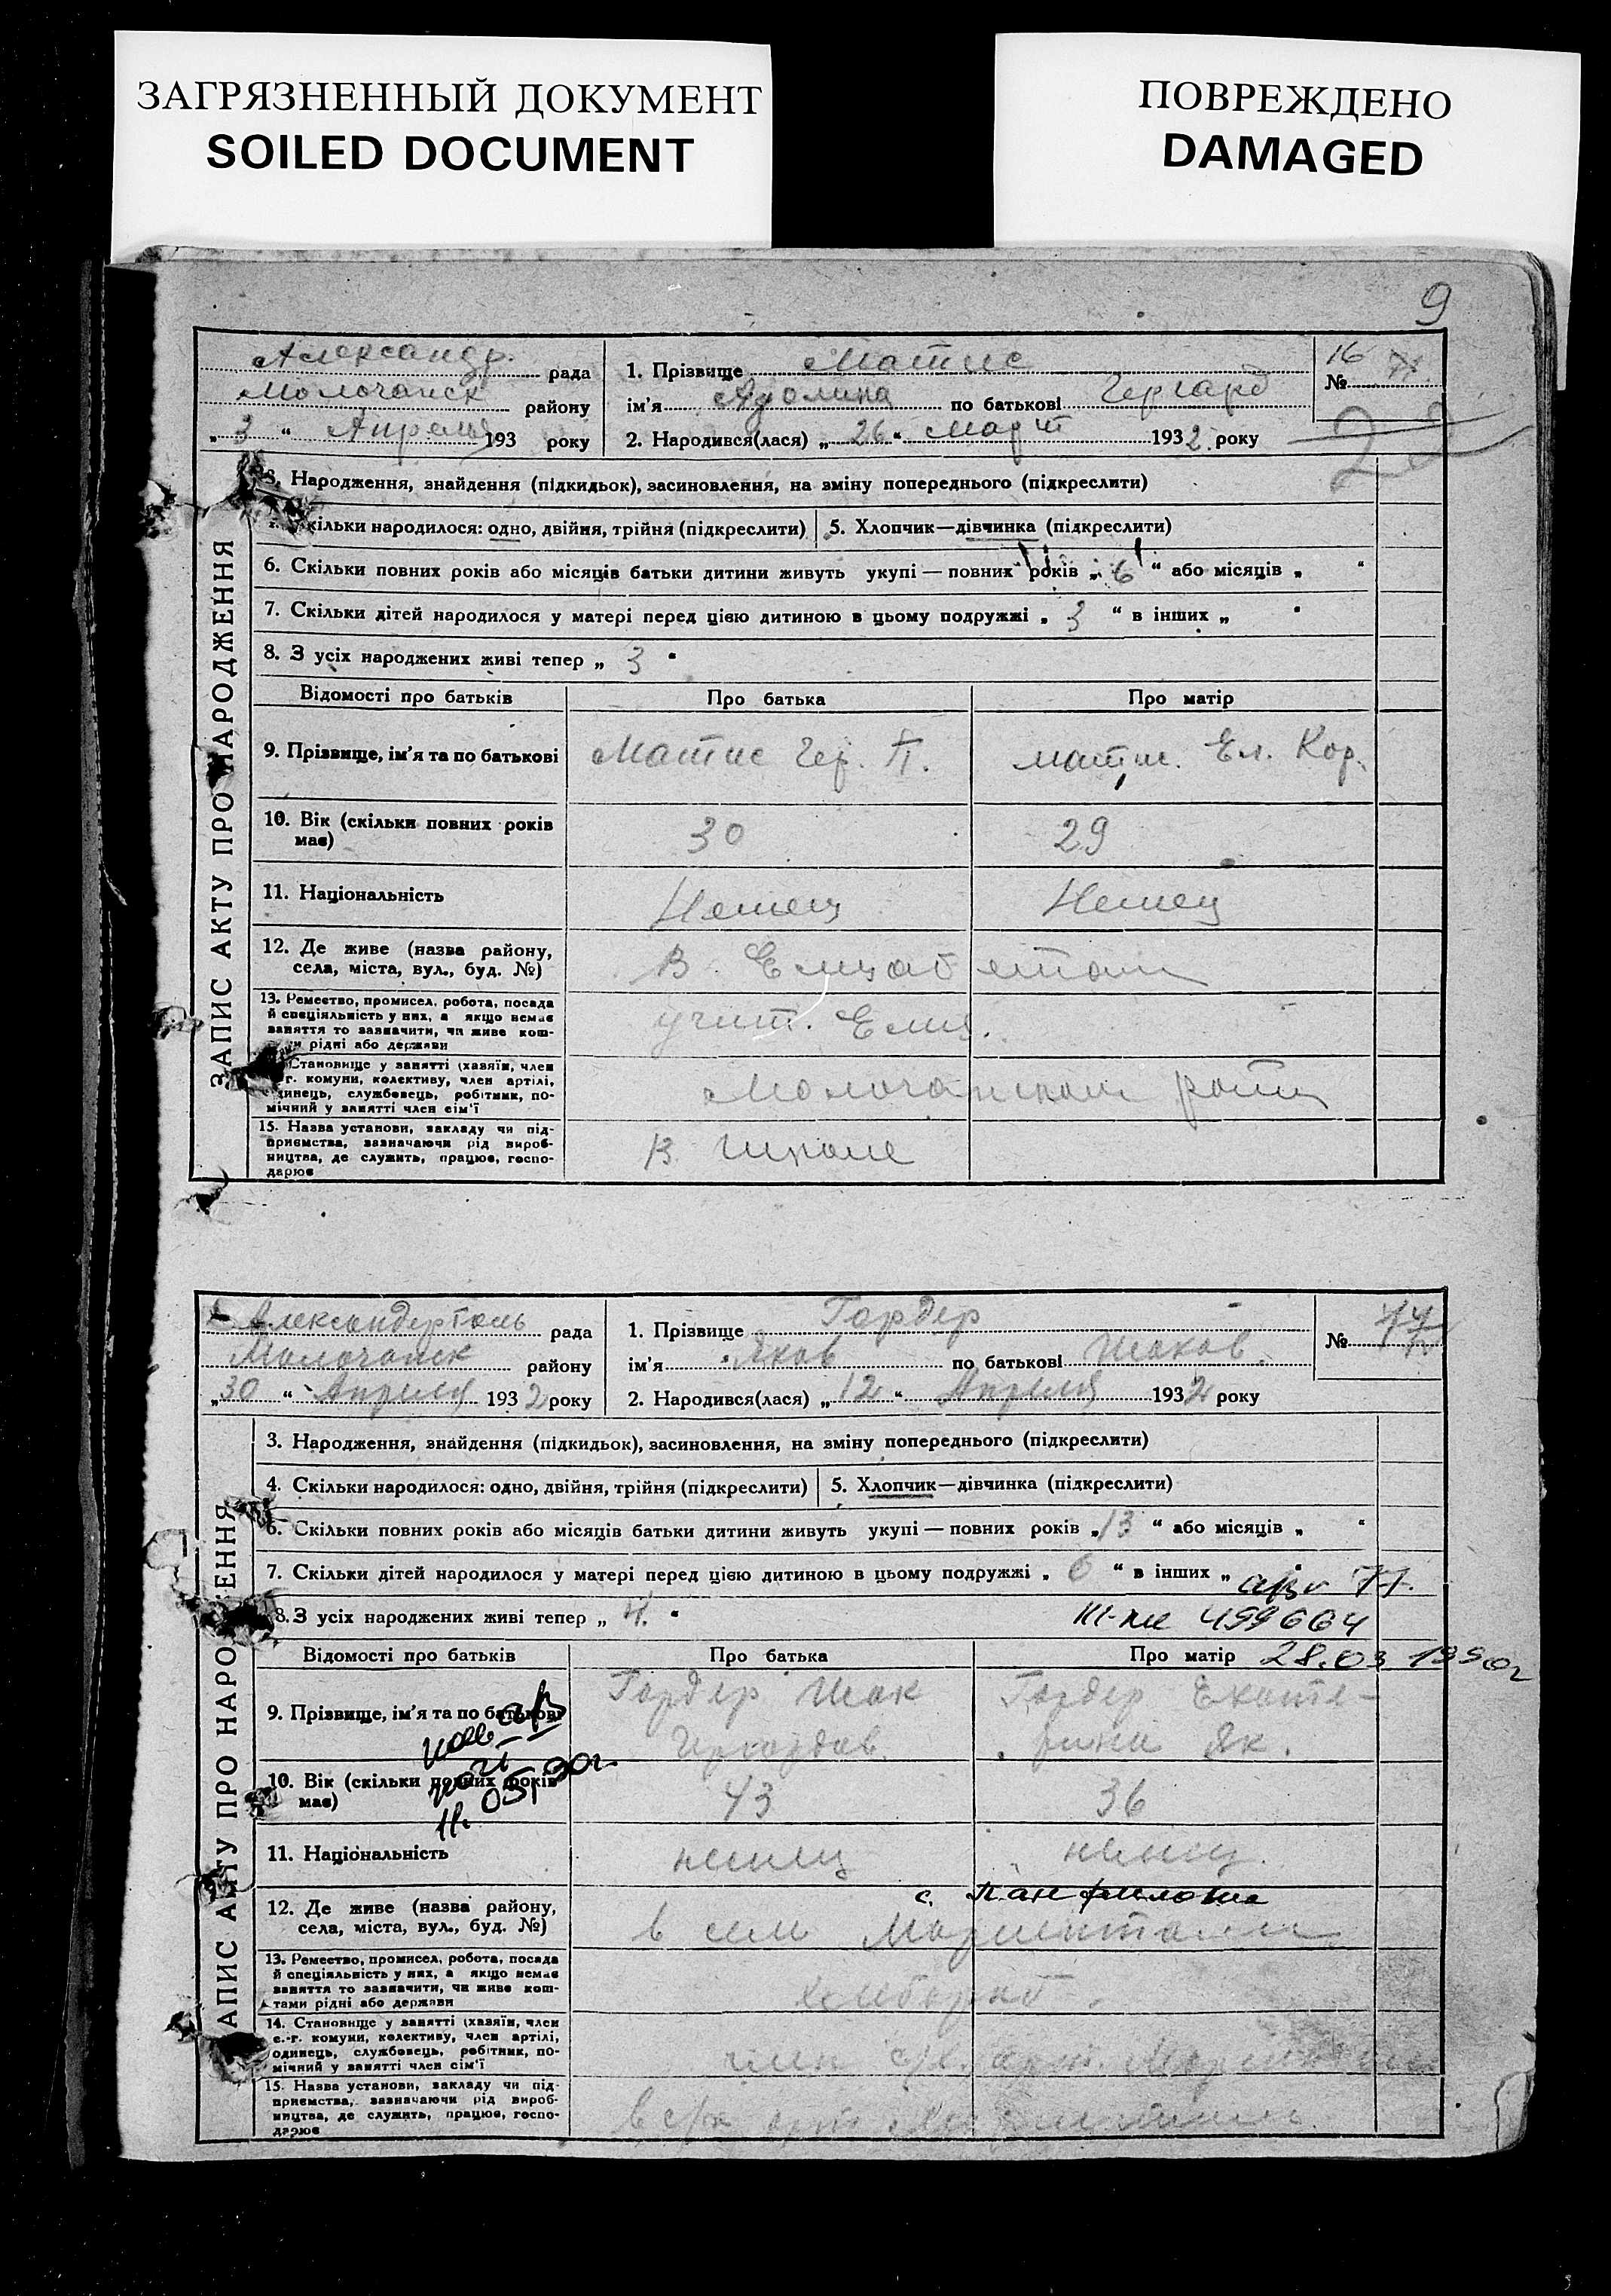 ЗАГРЯЗНЕННЫЙ ДОКУМЕНТ
SOILED DOCUMENT
ПОВРЕЖДЕНО
DAMAGED
9
Александр. рада
Молочанск району
„ 3 “ Апреля 193 року
1. Прізвище Матис
ім’я по батькові Гергард
2. Народився(лася) „ 26 “ Март 1932 року
16
№
ЗАПИС АКТУ ПРО НАРОДЖЕННЯ
3. Народження, знайдення (підкидьок), засиновлення, на зміну попереднього (підкреслити)
кільки народилося: одно, двійня, трійня (підкреслити) 5. Хлопчик—дівчинка (підкреслити)
6. Скільки повних років або місяців батьки дитини живуть укупі — повних років „ 6 “ або місяців „ “
7. Скільки дітей народилося у матері перед цією дитиною в цьому подружжі „ 3 “ в інших „ “
8. З усіх народжених живі тепер „ 3 “
Відомості про батьків Про батька Про матір
9. Прізвище, ім’я та по батькові Матис Гер. П. Матис. Ел. Кор.
10. Вік (скільки повних років 30 29
має)
11. Національність Немец Немец
12. Де живе (назва району, В
села, міста, вул., буд. №)
13. Ремество, промисел, робота, посада
й спеціяльність у них, а якщо немає учит.
заняття то зазначити, чи живе кош-
и рідні або держави
Становище у занятті (хазяїн, член
г. комуни, колективу, член артілі,
динець, службовець, робітник, по-
мічний у занятті член сім’ї
15. Назва установи, закладу чи під-
приємства, зазначаючи рід вироб- В школе
ництва, де служить, працює, госпо-
дарює
Александерталь рада
Молочанск району
„30 “ Апреля 1932 року
1. Прізвище Гардер
ім’я Яков по батькові Исаков.
2. Народився(лася) „ 12 “ Апреля 1932 року
№
АПИС АКТУ ПРО НАРО ЕННЯ
3. Народження, знайдення (підкидьок), засиновлення, на зміну попереднього (підкреслити)
4. Скільки народилося: одно, двійня, трійня (підкреслити) 5. Хлопчик—дівчинка (підкреслити)
6. Скільки повних років або місяців батьки дитини живуть укупі — повних років „13 “ або місяців „ “
7. Скільки дітей народилося у матері перед цією дитиною в цьому подружжі „ 6 “ в інших „
8. З усіх народжених живі тепер „ 4. “ 499664
Відомості про батьків Про батька Про матір 28.03 1990г
9. Прізвище, ім’я та по батькові Гардер Исак Гардер Екате-
рина Як.
10. Вік (скільки повних років 43 36
має)
11. Національність немец немец.
с. Панфиловка
12. Де живе (назва району, в селе Мариентали
села, міста, вул., буд. №)
13. Ремество, промисел, робота, посада
й спеціяльність у них, а якщо немає
заняття то зазначити, чи живе кош-
тами рідні або держави
14. Становище у занятті (хазяїн, член
с.-г. комуни, колективу, член артілі, член
одинець, службовець, робітник, по-
мічний у занятті член сім’ї
15. Назва установи, закладу чи під-
приємства, зазначаючи рід вироб-
ництва, де служить, працює, госпо-
дарює